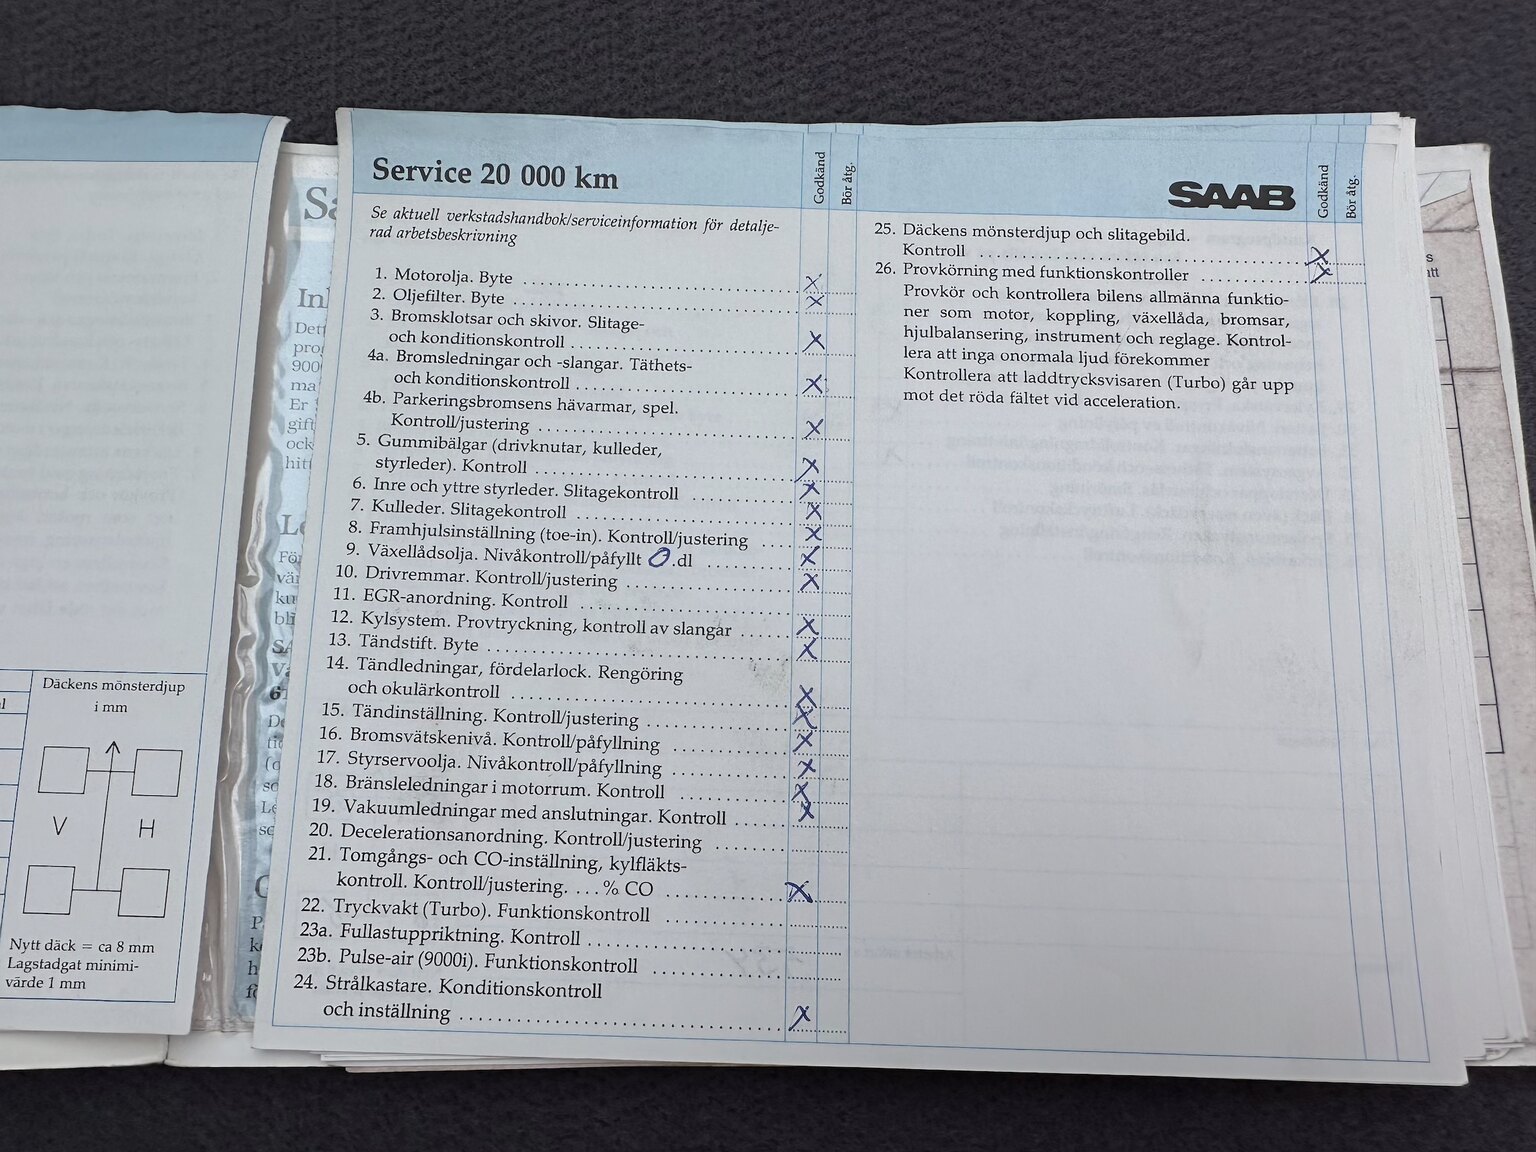 Däckens mönsterdjup
i mm
V H
Nytt däck = ca 8 mm
Lagstadgat minimi-
värde 1 mm
Service 20 000 km
Godkänd
Bör åtg.
Se aktuell verkstadshandbok/serviceinformation för detalje-
rad arbetsbeskrivning
1. Motorolja. Byte ........ X
2. Oljefilter. Byte ........ X
3. Bromsklotsar och skivor. Slitage-
och konditionskontroll ........ X
4a. Bromsledningar och -slangar. Täthets-
och konditionskontroll ........ X
4b. Parkeringsbromsens hävarmar, spel.
Kontroll/justering ........ X
5. Gummibälgar (drivknutar, kulleder,
styrleder). Kontroll ........ X
6. Inre och yttre styrleder. Slitagekontroll X
7. Kulleder. Slitagekontroll ........ X
8. Framhjulsinställning (toe-in). Kontroll/justering .... X
9. Växellådsolja. Nivåkontroll/påfyllt 0.dl ........ X
10. Drivremmar. Kontroll/justering ........ X
11. EGR-anordning. Kontroll ........
12. Kylsystem. Provtryckning, kontroll av slangar ..... X
13. Tändstift. Byte ........ X
14. Tändledningar, fördelarlock. Rengöring
och okulärkontroll ........ X
15. Tändinställning. Kontroll/justering ........ X
16. Bromsvätskenivå. Kontroll/påfyllning ........ X
17. Styrservoolja. Nivåkontroll/påfyllning ........ X
18. Bränsleledningar i motorrum. Kontroll ........ X
19. Vakuumledningar med anslutningar. Kontroll ..... X
20. Decelerationsanordning. Kontroll/justering ........
21. Tomgångs- och CO-inställning, kylfläkts-
kontroll. Kontroll/justering. ...% CO ........ X
22. Tryckvakt (Turbo). Funktionskontroll ........
23a. Fullastuppriktning. Kontroll ........
23b. Pulse-air (9000i). Funktionskontroll ........
24. Strålkastare. Konditionskontroll
och inställning ........ X
SAAB
Godkänd
Bör åtg.
25. Däckens mönsterdjup och slitagebild.
Kontroll ........ X
26. Provkörning med funktionskontroller ........ X
Provkör och kontrollera bilens allmänna funktio-
ner som motor, koppling, växellåda, bromsar,
hjulbalansering, instrument och reglage. Kontrol-
lera att inga onormala ljud förekommer
Kontrollera att laddtrycksvisaren (Turbo) går upp
mot det röda fältet vid acceleration.